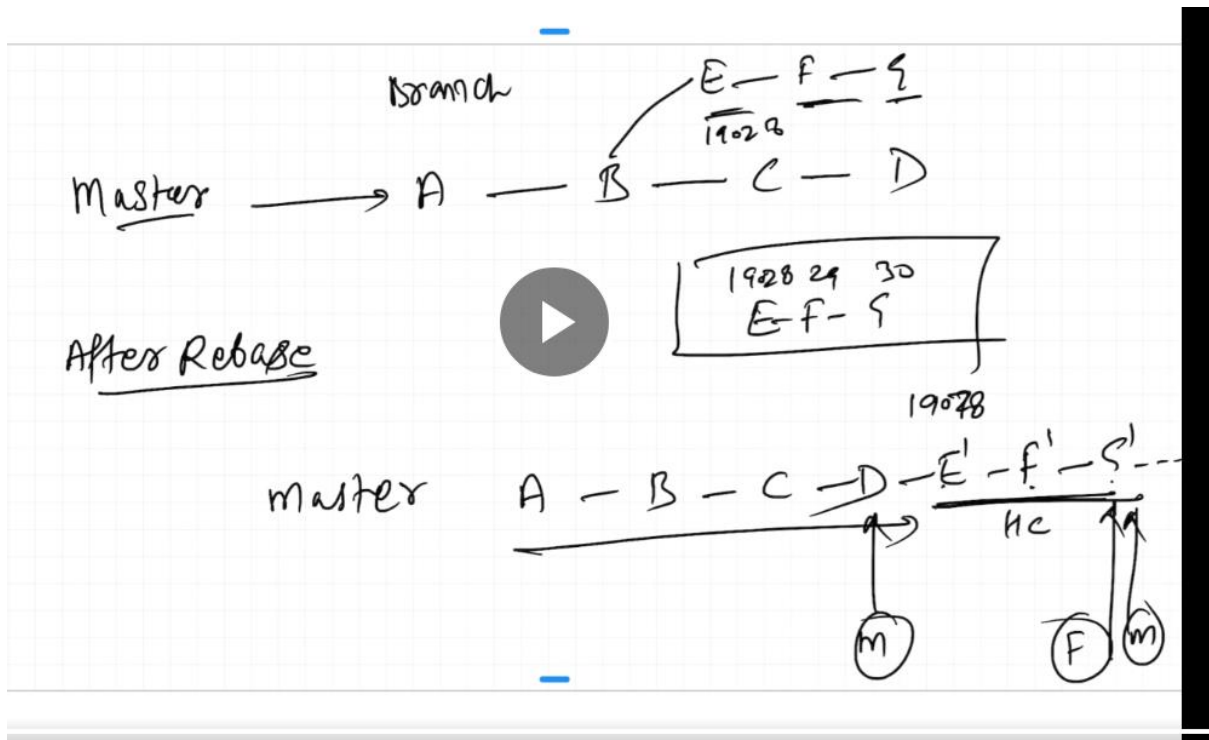 Branch E - F - G
19028
Master → A - B - C - D
19028 29 30
E - F - G
After Rebase
19078
master A - B - C - D - E' - F' - G' ---
HC
M F M